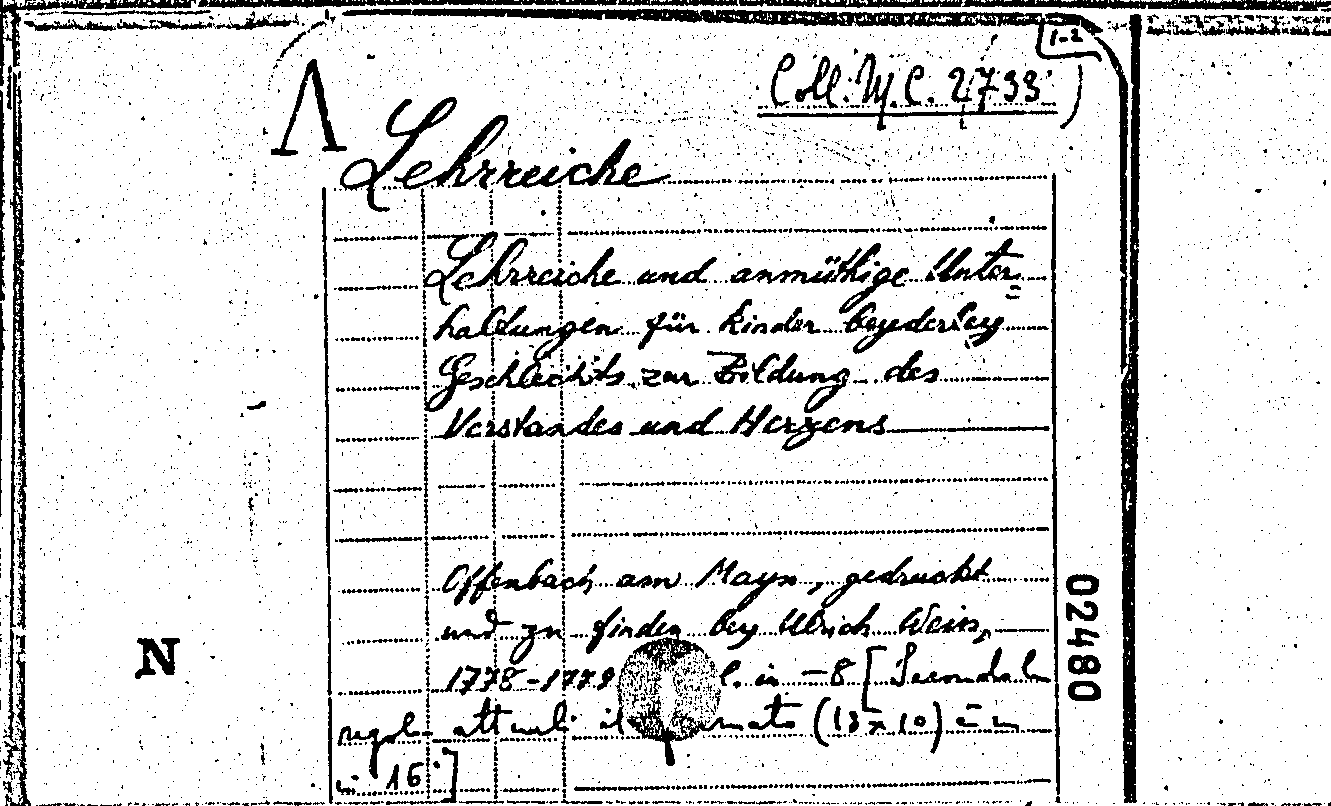 1-2
Coll. N.C. 2733
Λ
Lehrreiche
Lehrreiche und anmüthige Unter=
haltungen für Kinder beyderley
Geschlechts zur Bildung des
Verstandes und Herzens
Offenbach am Mayn, gedruckt
und zu finden bey Ulrich Weiss,
N
02480
1778-1779 in -8 [Secondo le
regole attuali il (13x10) è un
in 16°]